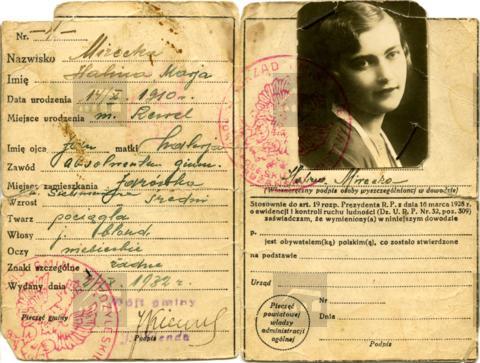 Nr.
Nazwisko Mirecka
Imię Halina Marja
Data urodzenia 1910
Miejsce urodzenia m. Rewel
Imię ojca matki
Zawód absolwentka
Miejsce zamieszkania
Wzrost średni
Twarz pociągła
Włosy j. blond
Oczy niebieskie
Znaki szczególne żadne
Wydany dnia
Wójt gminy
Pieczęć gminy
Podpis
Halina Mirecka
(Własnoręczny podpis osoby wyszczególnionej w dowodzie)
Stosownie do art. 19 rozp. Prezydenta R. P. z dn. 16 marca 1928 r.
o ewidencji i kontroli ruchu ludności (Dz. U. R. P. Nr. 32, poz. 309)
zaświadczam, że wymieniony(a) w niniejszym dowodzie
p.
jest obywatelem(ką) polskim(ą), co zostało stwierdzone
na podstawie
Urząd
Nr.
Dnia
Pieczęć
powiatowej
władzy
administracji
ogólnej
Podpis